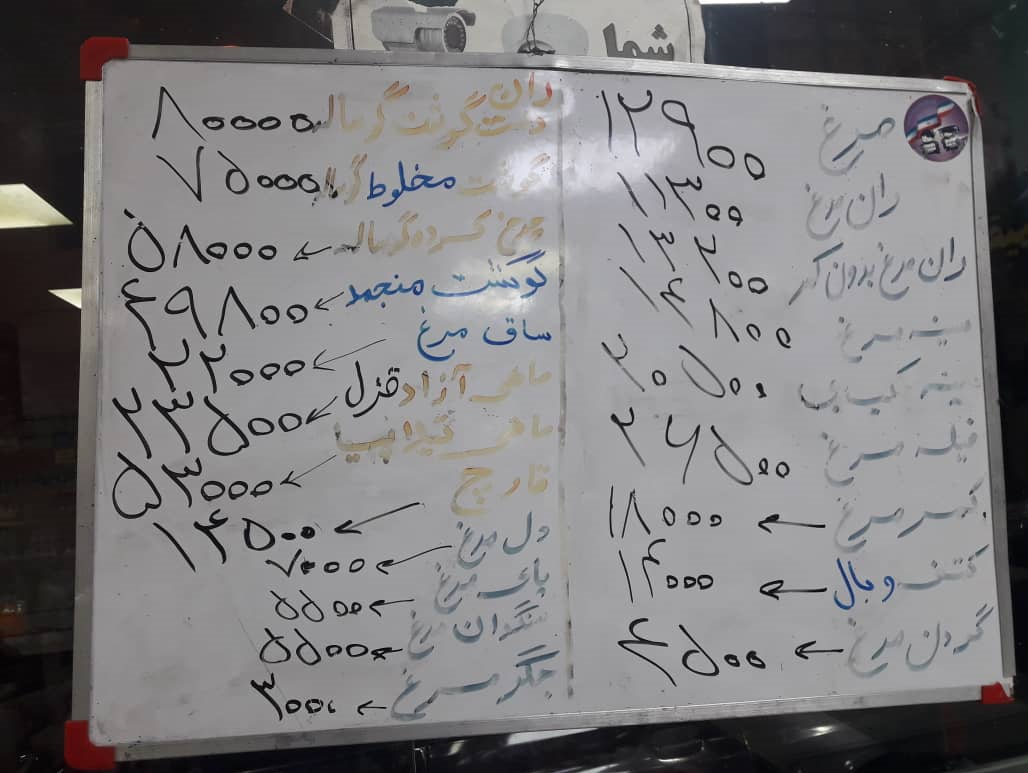 شما
مرغ ۱۲۹۰۰
ران مرغ ۱۱۳۰۰
ران مرغ بدون کمر ۱۳۲۰۰
سینه مرغ ۱۴۸۰۰
سینه کبابی ۲۰۵۰۰
فیله مرغ ۲۶۵۰۰
کمر مرغ ← ۱۸۰۰۰
کتف و بال ← ۱۴۰۰۰
گردن مرغ ← ۴۵۰۰
ران
دست گوشت گوساله ۸۰۰۰۰
گوشت مخلوط ۷۵۰۰۰
چرخ کرده گوساله ← ۵۸۰۰۰
گوشت منجمد ← ۴۹۸۰۰
ساق مرغ ← ۲۲۰۰۰
ماهی آزاد قزل ← ۲۳۵۰۰
ماهی تیلاپیا ← ۵۳۰۰۰
قارچ ← ۱۴۵۰۰
دل مرغ ← ۷۰۰۰
پای مرغ ← ۵۵۰۰
سنگدان مرغ ← ۵۵۰۰
جگر مرغ ← ۳۰۰۰